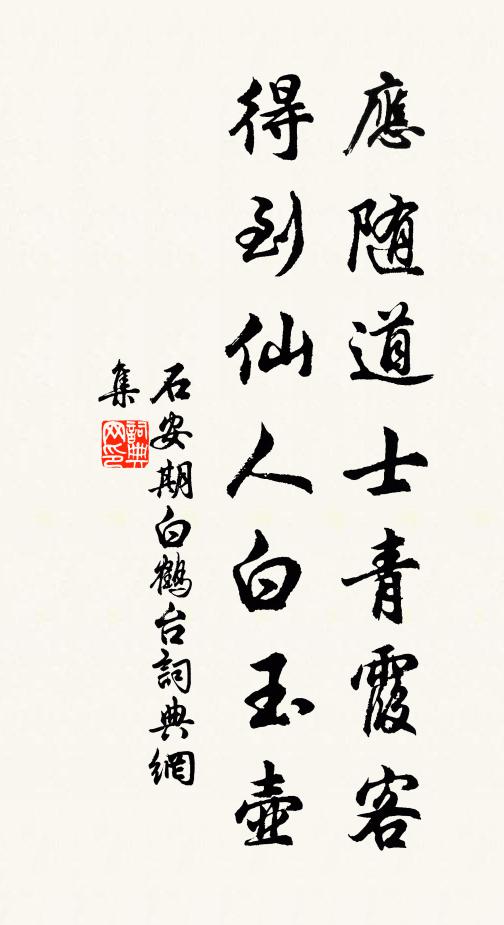 應随道士青霞客
得到仙人白玉壺
石安期白鶴台詞典網
集
詞典
网印